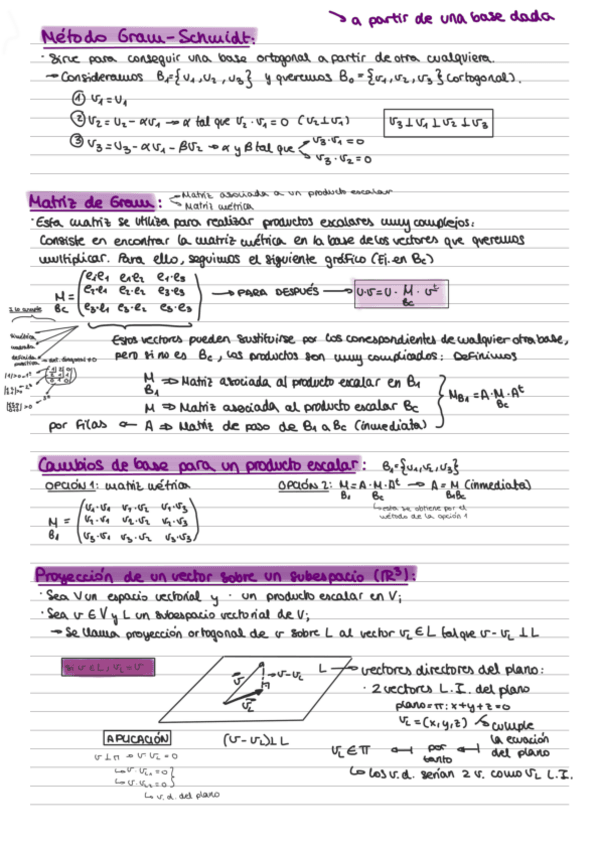 ↘ a partir de una base dada
Método Gram-Schmidt:
· Sirve para conseguir una base ortogonal a partir de otra cualquiera.
→ Consideramos B₁={u₁,u₂,u₃} y queremos B₀={v₁,v₂,v₃} (ortogonal).
① v₁=u₁
② v₂=u₂-αv₁ → α tal que v₂·v₁=0 (v₂⊥v₁)
v₃⊥v₁⊥v₂⊥v₃
③ v₃=u₃-αv₁-βv₂ → α y β tal que v₃·v₁=0
v₃·v₂=0
Matriz de Gram:
Matriz asociada a un producto escalar
Matriz métrica
· Esta matriz se utiliza para realizar productos escalares muy complejos.
Consiste en encontrar la matriz métrica en la base de los vectores que queremos
multiplicar. Para ello, seguimos el siguiente gráfico (Ej. en Bc)
e₁e₁ e₁e₂ e₁·e₃
M = e₂·e₁ e₂·e₂ e₂e₃ → PARA DESPUÉS → u·v=u·M·vᵗ
Bc e₃·e₁ e₃·e₂ e₃·e₃ Bc
simétrica
definida
positiva
Estos vectores pueden sustituirse por los correspondientes de cualquier otra base,
pero si no es Bc, los productos son muy complicados: Definimos
M ⇒ Matriz asociada al producto escalar en B₁
B₁
M_B₁=A·M·Aᵗ
Bc
M ⇒ Matriz asociada al producto escalar Bc
por filas ← A ⇒ Matriz de paso de B₁ a Bc (inmediata)
Cambios de base para un producto escalar: B₁={v₁,v₂,v₃}
OPCIÓN 1: matriz métrica
OPCIÓN 2: M=A·M·Aᵗ → A=M (inmediata)
B₁ Bc B₁Bc
esta se obtiene por el
método de la opción 1
v₁·v₁ v₁·v₂ v₁·v₃
M = v₂·v₁ v₂·v₂ v₂·v₃
B₁ v₃·v₁ v₃·v₂ v₃·v₃
Proyección de un vector sobre un subespacio (ℝ³):
· Sea V un espacio vectorial y · un producto escalar en V;
· Sea v∈V y L un subespacio vectorial de V;
→ Se llama proyección ortogonal de v sobre L al vector v_L∈L tal que v-v_L⊥L
Si v∈L, v_L=v
v
v-v_L
v_L
L → vectores directores del plano:
· 2 vectores L.I. del plano
plano=π: x+y+z=0
v_L=(x,y,z) cumple
la ecuación
del plano
APLICACIÓN
(v-v_L)⊥L
v_L∈π ← por tanto ←
v⊥π → v·v_L=0
v·v_L₁=0
v·v_L₂=0
↳ v.d. del plano
↳ los v.d. serían 2 v. como v_L L.I.